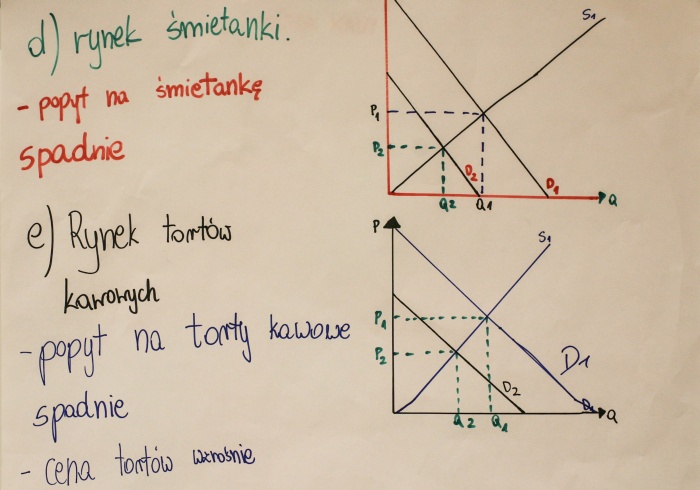 d) rynek śmietanki.
- popyt na śmietankę
spadnie
S1
P1
P2
D2
D1
Q2
Q1
Q
e) Rynek tortów
kawowych
- popyt na torty kawowe
spadnie
- cena tortów wzrośnie
P
S1
P1
P2
D1
D2
Q2
Q1
Q